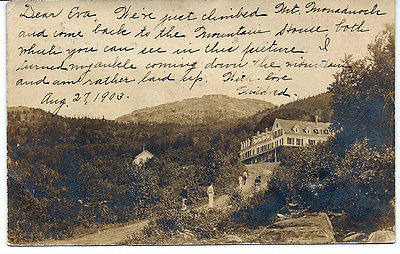 Dear Eva, We're just climbed Mt. Monadnock
and come back to the Mountain House both
which you can see in this picture. I
turned my ankle coming down the mountain
and am rather laid up. With love
Aug. 27, 1903. Mildred.